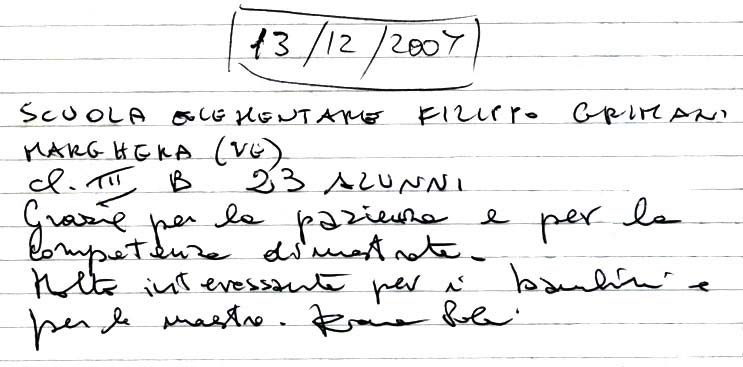 13/12/2007
SCUOLA ELEMENTARE FILIPPO GRIMANI
MARGHERA (VE)
cl. III B 23 ALUNNI
Grazie per la pazienza e per la
competenza dimostrata.
Molto interessante per i bambini e
per le maestre.